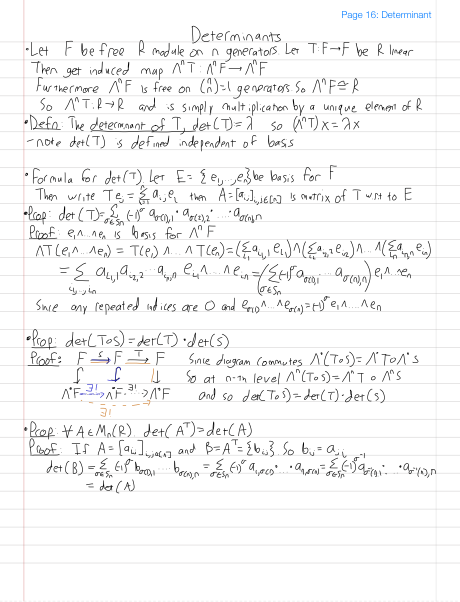 Page 16: Determinant
Determinants
•Let F be free R module on n generators Let T:F→F be R linear
Then get induced map ΛⁿT : ΛⁿF → ΛⁿF
Furthermore ΛⁿF is free on (n n)=1 generators. So ΛⁿF ≅ R
So ΛⁿT: R→R and is simply multiplication by a unique element of R
•Defn: The determinant of T, det(T)=λ so (ΛⁿT)x = λx
-note det(T) is defined independent of basis
•Formula for det(T). Let E = {e₁,...,eₙ} be basis for F
Then write Teⱼ = Σ aᵢⱼ eᵢ then A = [aᵢⱼ]ᵢ,ⱼ∈[n] is matrix of T wrt to E
•Prop: det(T) = Σ_{σ∈Sₙ} (-1)^σ a_{σ(1),1} · a_{σ(2),2} · ... · a_{σ(n),n}
Proof: e₁∧...∧eₙ is basis for ΛⁿF
ΛT(e₁∧...∧eₙ) = T(e₁)∧...∧T(eₙ) = (Σ a_{i₁,1} e_{i₁})∧(Σ a_{i₂,2} e_{i₂})∧...∧(Σ a_{iₙ,n} e_{iₙ})
= Σ_{i₁,...,iₙ} a_{i₁,1} a_{i₂,2} ... a_{iₙ,n} e_{i₁}∧...∧e_{iₙ} = (Σ_{σ∈Sₙ} (-1)^σ a_{σ(1),1} ... a_{σ(n),n}) e₁∧...∧eₙ
Since any repeated indices are 0 and e_{σ(1)}∧...∧e_{σ(n)} = (-1)^σ e₁∧...∧eₙ
•Prop: det(T∘S) = det(T)·det(S)
Proof: F →S F →T F Since diagram commutes Λ˙(T∘S) = Λ˙T∘Λ˙S
↓ ↓ ↓ So at n-th level Λⁿ(T∘S) = ΛⁿT∘ΛⁿS
Λ˙F →∃! Λ˙F →∃! Λ˙F and so det(T∘S) = det(T)·det(S)
∃!
•Prop: ∀A∈Mₙ(R). det(Aᵀ) = det(A)
Proof: If A = [aᵢⱼ]ᵢ,ⱼ∈[n] and B = Aᵀ = {bᵢⱼ}. So bᵢⱼ = aⱼᵢ
det(B) = Σ_{σ∈Sₙ} (-1)^σ b_{σ(1),1} ... b_{σ(n),n} = Σ_{σ∈Sₙ} (-1)^σ a_{1,σ(1)} ... a_{n,σ(n)} = Σ_{σ∈Sₙ} (-1)^{σ⁻¹} a_{σ⁻¹(1),1} ... a_{σ⁻¹(n),n}
= det(A)